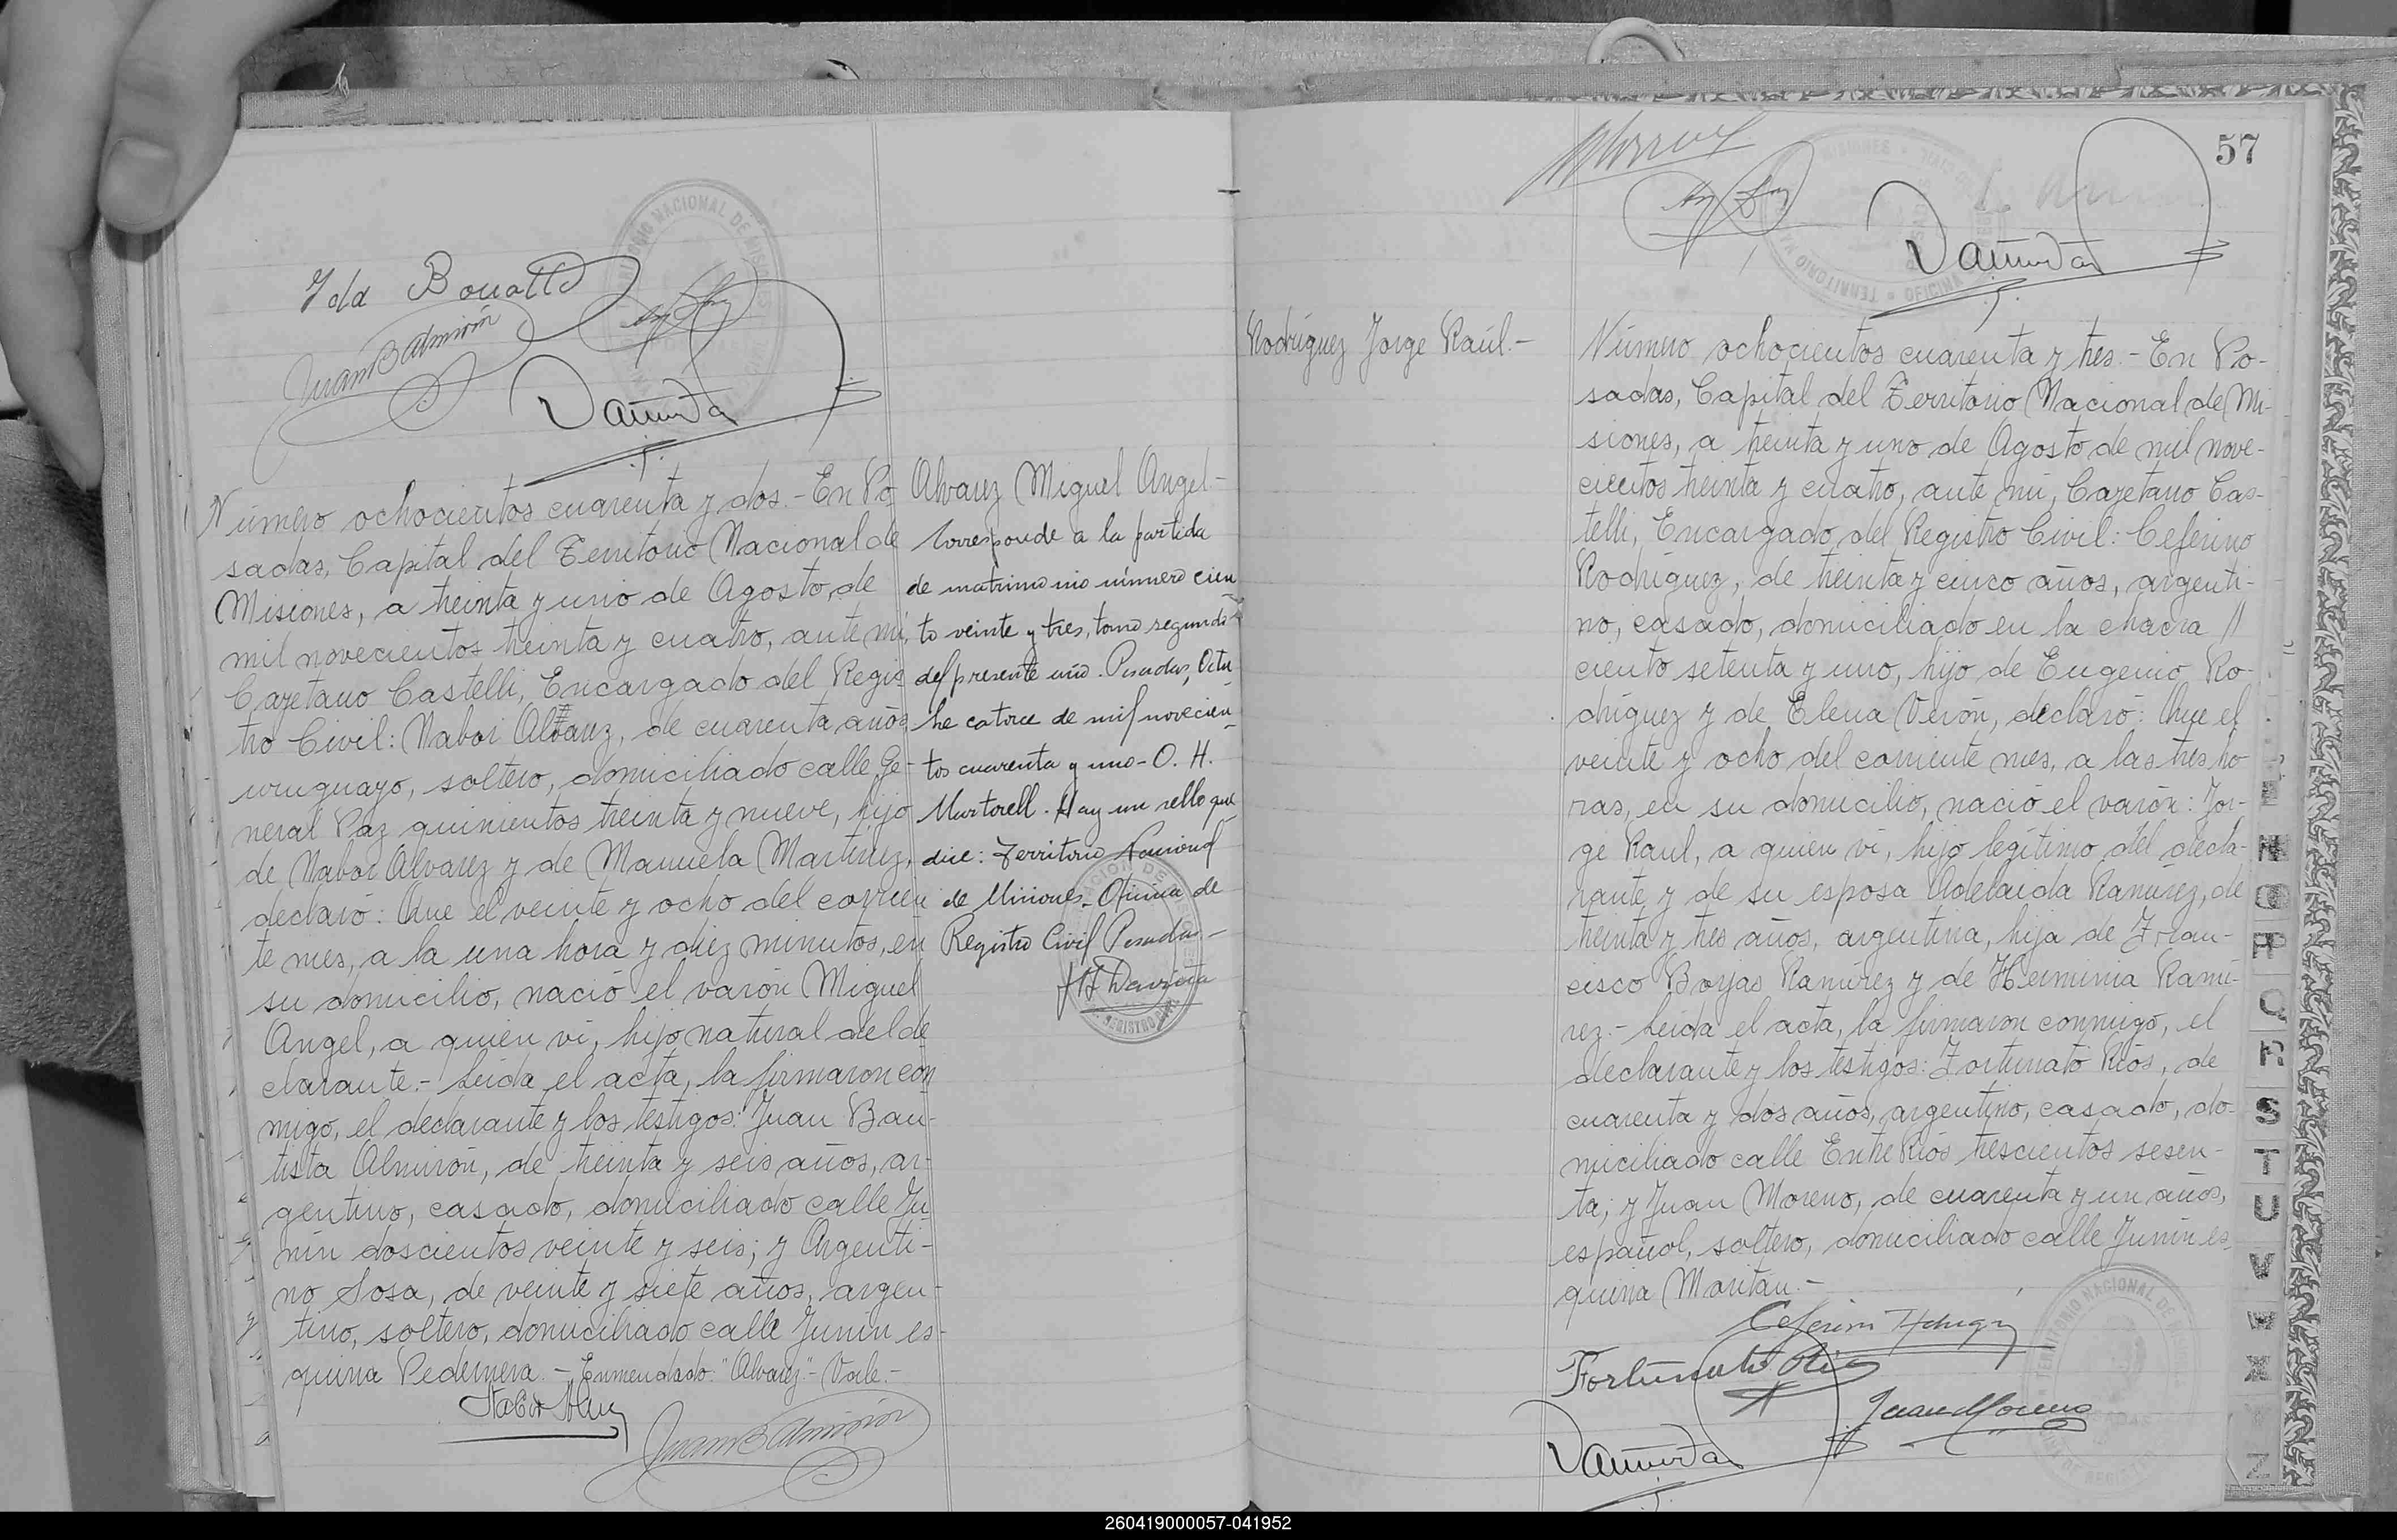 Ida Bonatto
Juan B Almirón
Número ochocientos cuarenta y dos.- En Po-
sadas, Capital del Territorio Nacional de
Misiones, a treinta y uno de Agosto, de
mil novecientos treinta y cuatro, ante mí,
Cayetano Castelli, Encargado del Regis-
tro Civil: Nabor Alvarez, de cuarenta años,
uruguayo, soltero, domiciliado calle Ge-
neral Paz quinientos treinta y nueve, hijo
de Nabor Alvarez y de Manuela Martinez,
declaró: Que el veinte y ocho del corrien
te mes, a la una hora y diez minutos, en
su domicilio, nació el varón Miguel
Angel, a quien vi, hijo natural del de
clarante.- Leida el acta, la firmaron con
migo, el declarante y los testigos: Juan Bau-
tista Almirón, de treinta y seis años, ar-
gentino, casado, domiciliado calle Ju
nin doscientos veinte y seis; y Argenti-
no Sosa, de veinte y siete años, argen-
tino, soltero, domiciliado calle Junin es-
quina Pedernera.- Enmendado: "Alvarez"- Vale.-
Juan B Almirón
Alvarez Miguel Angel-
Corresponde a la partida
de matrimonio número cien
to veinte y tres, tomo segundo
del presente año. Posadas, Octu
bre catorce de mil novecien
tos cuarenta y uno- O. H.
Martorell. Hay un sello que
dice: Territorio Nacional
de Misiones- Oficina de
Registro Civil Posadas-
57
Rodríguez Jorge Raúl.-
Número ochocientos cuarenta y tres.- En Po-
sadas, Capital del Territorio Nacional de Mi-
siones, a treinta y uno de Agosto de mil nove-
cientos treinta y cuatro, ante mí, Cayetano Cas-
telli, Encargado del Registro Civil: Ceferino
Rodríguez, de treinta y cinco años, argenti-
no, casado, domiciliado en la chacra //
ciento setenta y uno, hijo de Eugenio Ro-
driguez y de Elena Verón, declaró: Que el
veinte y ocho del corriente mes, a las tres ho
ras, en su domicilio, nació el varón: Jor-
ge Raul, a quien vi, hijo legítimo del decla-
rante y de su esposa Adelaida Ramírez, de
treinta y tres años, argentina, hija de Fran-
cisco Borjas Ramírez y de Herminia Ramí-
rez.- Leida el acta, la firmaron conmigo, el
declarante y los testigos: Fortunato Ríos, de
cuarenta y dos años, argentino, casado, do-
miciliado calle Entre Ríos trescientos sesen-
ta; y Juan Moreno, de cuarenta y un años,
español, soltero, domiciliado calle Junin es-
quina Maritán.-
Fortunato Ríos
Juan Moreno
TERRITORIO NACIONAL DE MISIONES
N
O
P
Q
R
S
T
U
V
W
X
Z
260419000057-041952